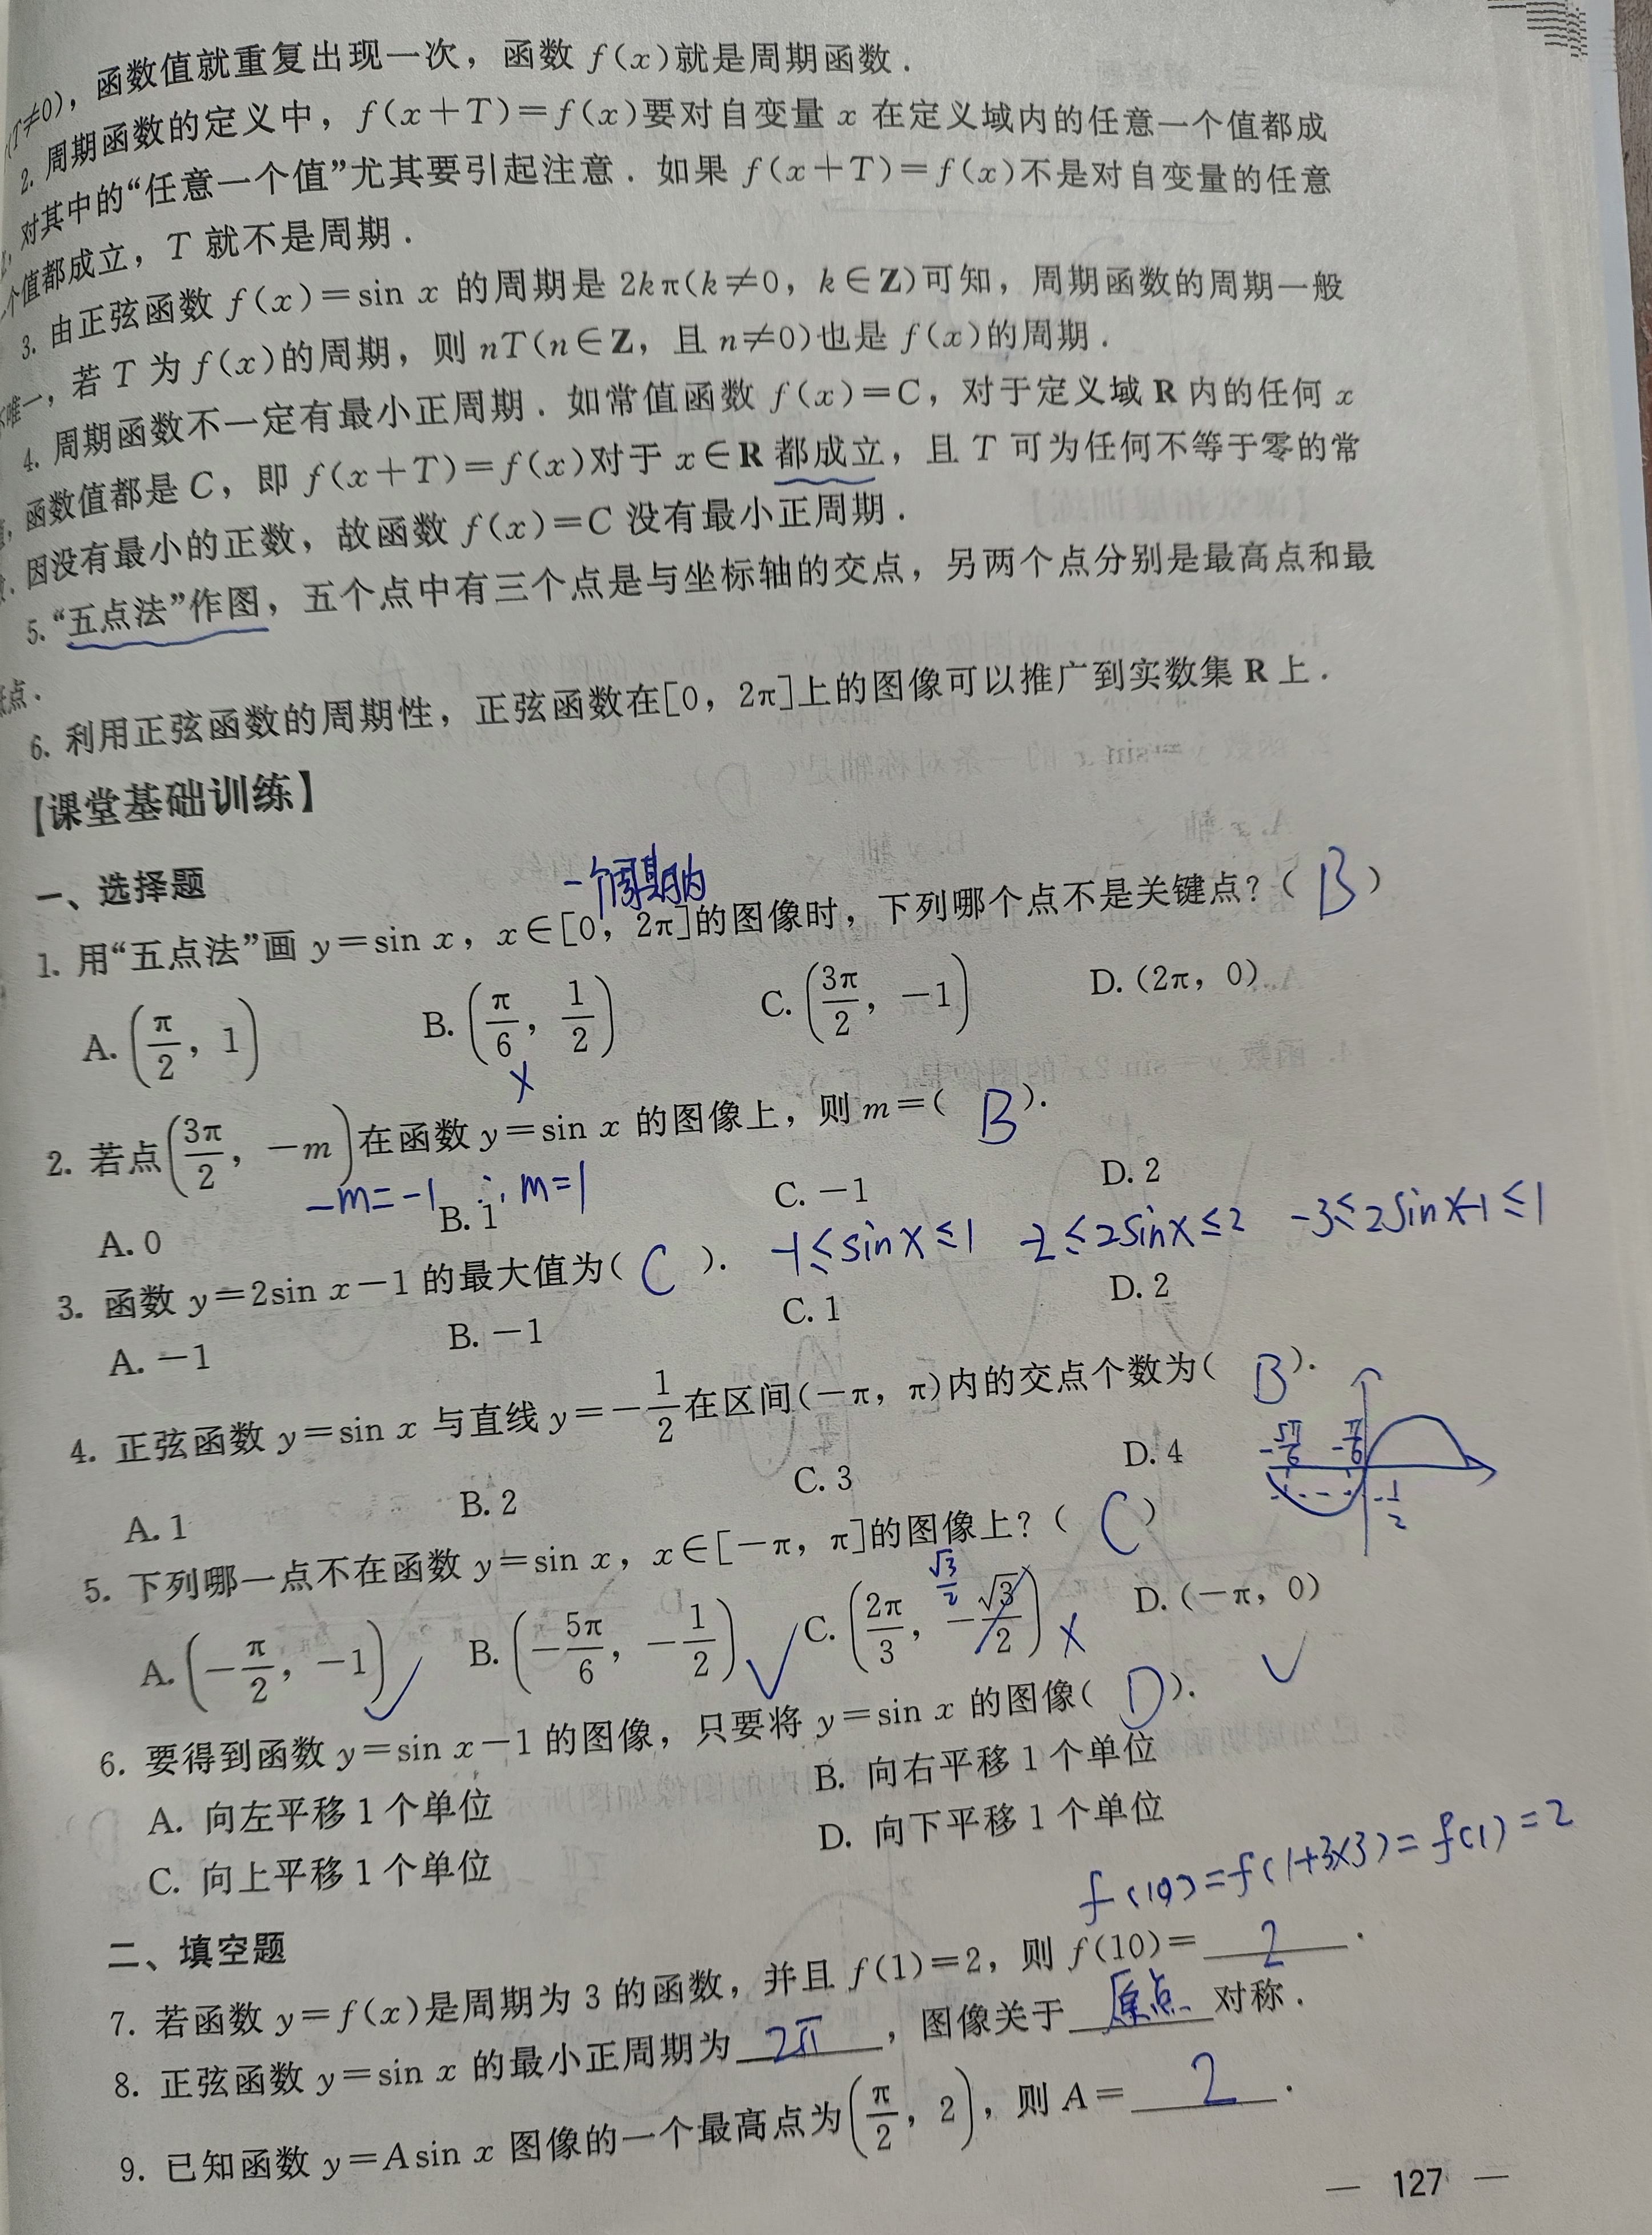 (T≠0), 函数值就重复出现一次, 函数 f(x)就是周期函数.
2. 周期函数的定义中, f(x+T)=f(x)要对自变量 x 在定义域内的任意一个值都成
, 对其中的“任意一个值”尤其要引起注意. 如果 f(x+T)=f(x)不是对自变量的任意
个值都成立, T 就不是周期.
3. 由正弦函数 f(x)=sin x 的周期是 2kπ(k≠0, k∈Z)可知, 周期函数的周期一般
唯一, 若 T 为 f(x)的周期, 则 nT(n∈Z, 且 n≠0)也是 f(x)的周期.
4. 周期函数不一定有最小正周期. 如常值函数 f(x)=C, 对于定义域 R 内的任何 x
, 函数值都是 C, 即 f(x+T)=f(x)对于 x∈R 都成立, 且 T 可为任何不等于零的常
. 因没有最小的正数, 故函数 f(x)=C 没有最小正周期.
5. “五点法”作图, 五个点中有三个点是与坐标轴的交点, 另两个点分别是最高点和最
点.
6. 利用正弦函数的周期性, 正弦函数在[0, 2π]上的图像可以推广到实数集 R 上.
【课堂基础训练】
一、选择题
一个周期内
1. 用“五点法”画 y=sin x, x∈[0, 2π]的图像时, 下列哪个点不是关键点? ( B )
A. (π/2, 1) B. (π/6, 1/2) C. (3π/2, -1) D. (2π, 0)
x
2. 若点(3π/2, -m)在函数 y=sin x 的图像上, 则 m=( B ).
-m=-1 ∴m=1
A. 0 B. 1 C. -1 D. 2
-1≤sinx≤1 -2≤2sinx≤2 -3≤2sinx-1≤1
3. 函数 y=2sin x-1 的最大值为( C ).
A. -1 B. -1 C. 1 D. 2
4. 正弦函数 y=sin x 与直线 y=-1/2 在区间(-π, π)内的交点个数为( B ).
-5π/6 -π/6
-1/2
A. 1 B. 2 C. 3 D. 4
5. 下列哪一点不在函数 y=sin x, x∈[-π, π]的图像上? ( C )
√3/2
A. (-π/2, -1) ✓ B. (-5π/6, -1/2) ✓ C. (2π/3, -√3/2) x D. (-π, 0) ✓
6. 要得到函数 y=sin x-1 的图像, 只要将 y=sin x 的图像( D ).
A. 向左平移 1 个单位 B. 向右平移 1 个单位
C. 向上平移 1 个单位 D. 向下平移 1 个单位
f(10)=f(1+3x3)=f(1)=2
二、填空题
7. 若函数 y=f(x)是周期为 3 的函数, 并且 f(1)=2, 则 f(10)= 2 .
8. 正弦函数 y=sin x 的最小正周期为 2π , 图像关于 原点 对称.
9. 已知函数 y=Asin x 图像的一个最高点为(π/2, 2), 则 A= 2 .
— 127 —